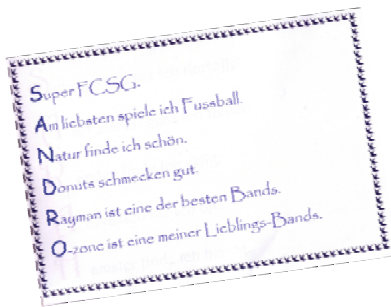 Super FCSG.
Am liebsten spiele ich Fussball.
Natur finde ich schön.
Donuts schmecken gut.
Rayman ist eine der besten Bands.
O-zone ist eine meiner Lieblings-Bands.